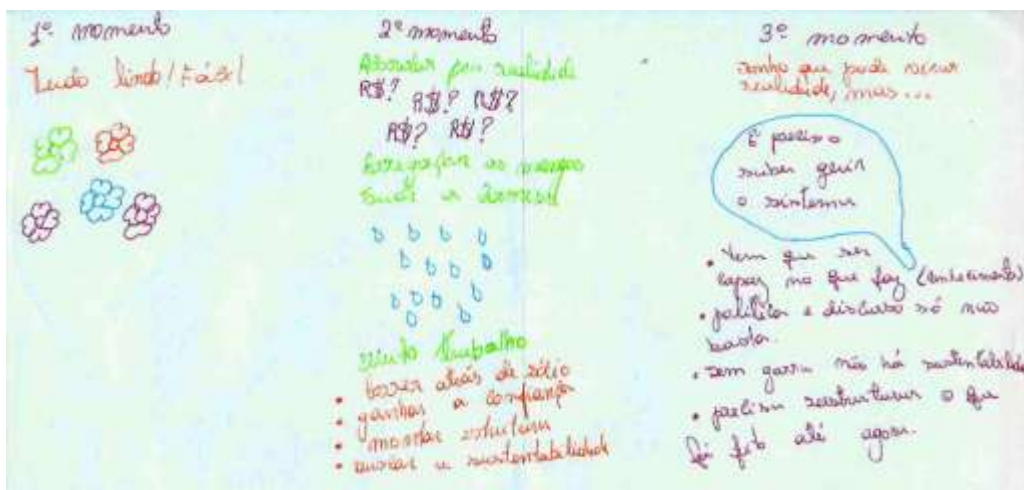 1º momento
Tudo lindo! Fácil
2º momento
Abordar pra realidade
R$? R$? R$?
R$? R$?
Arregaçar as mangas
Suar a
muito trabalho
• correr atrás de sócio
• ganhar a confiança
• montar estrutura
• buscar a sustentabilidade
3º momento
sonho que pode virar
realidade, mas...
É preciso
saber gerir
o sistema
• tem que ser
capaz no que faz (conhecimento)
• política e discurso só não
basta.
• sem garra não há sustentabilidade
• preciso reestruturar o que
foi feito até agora.